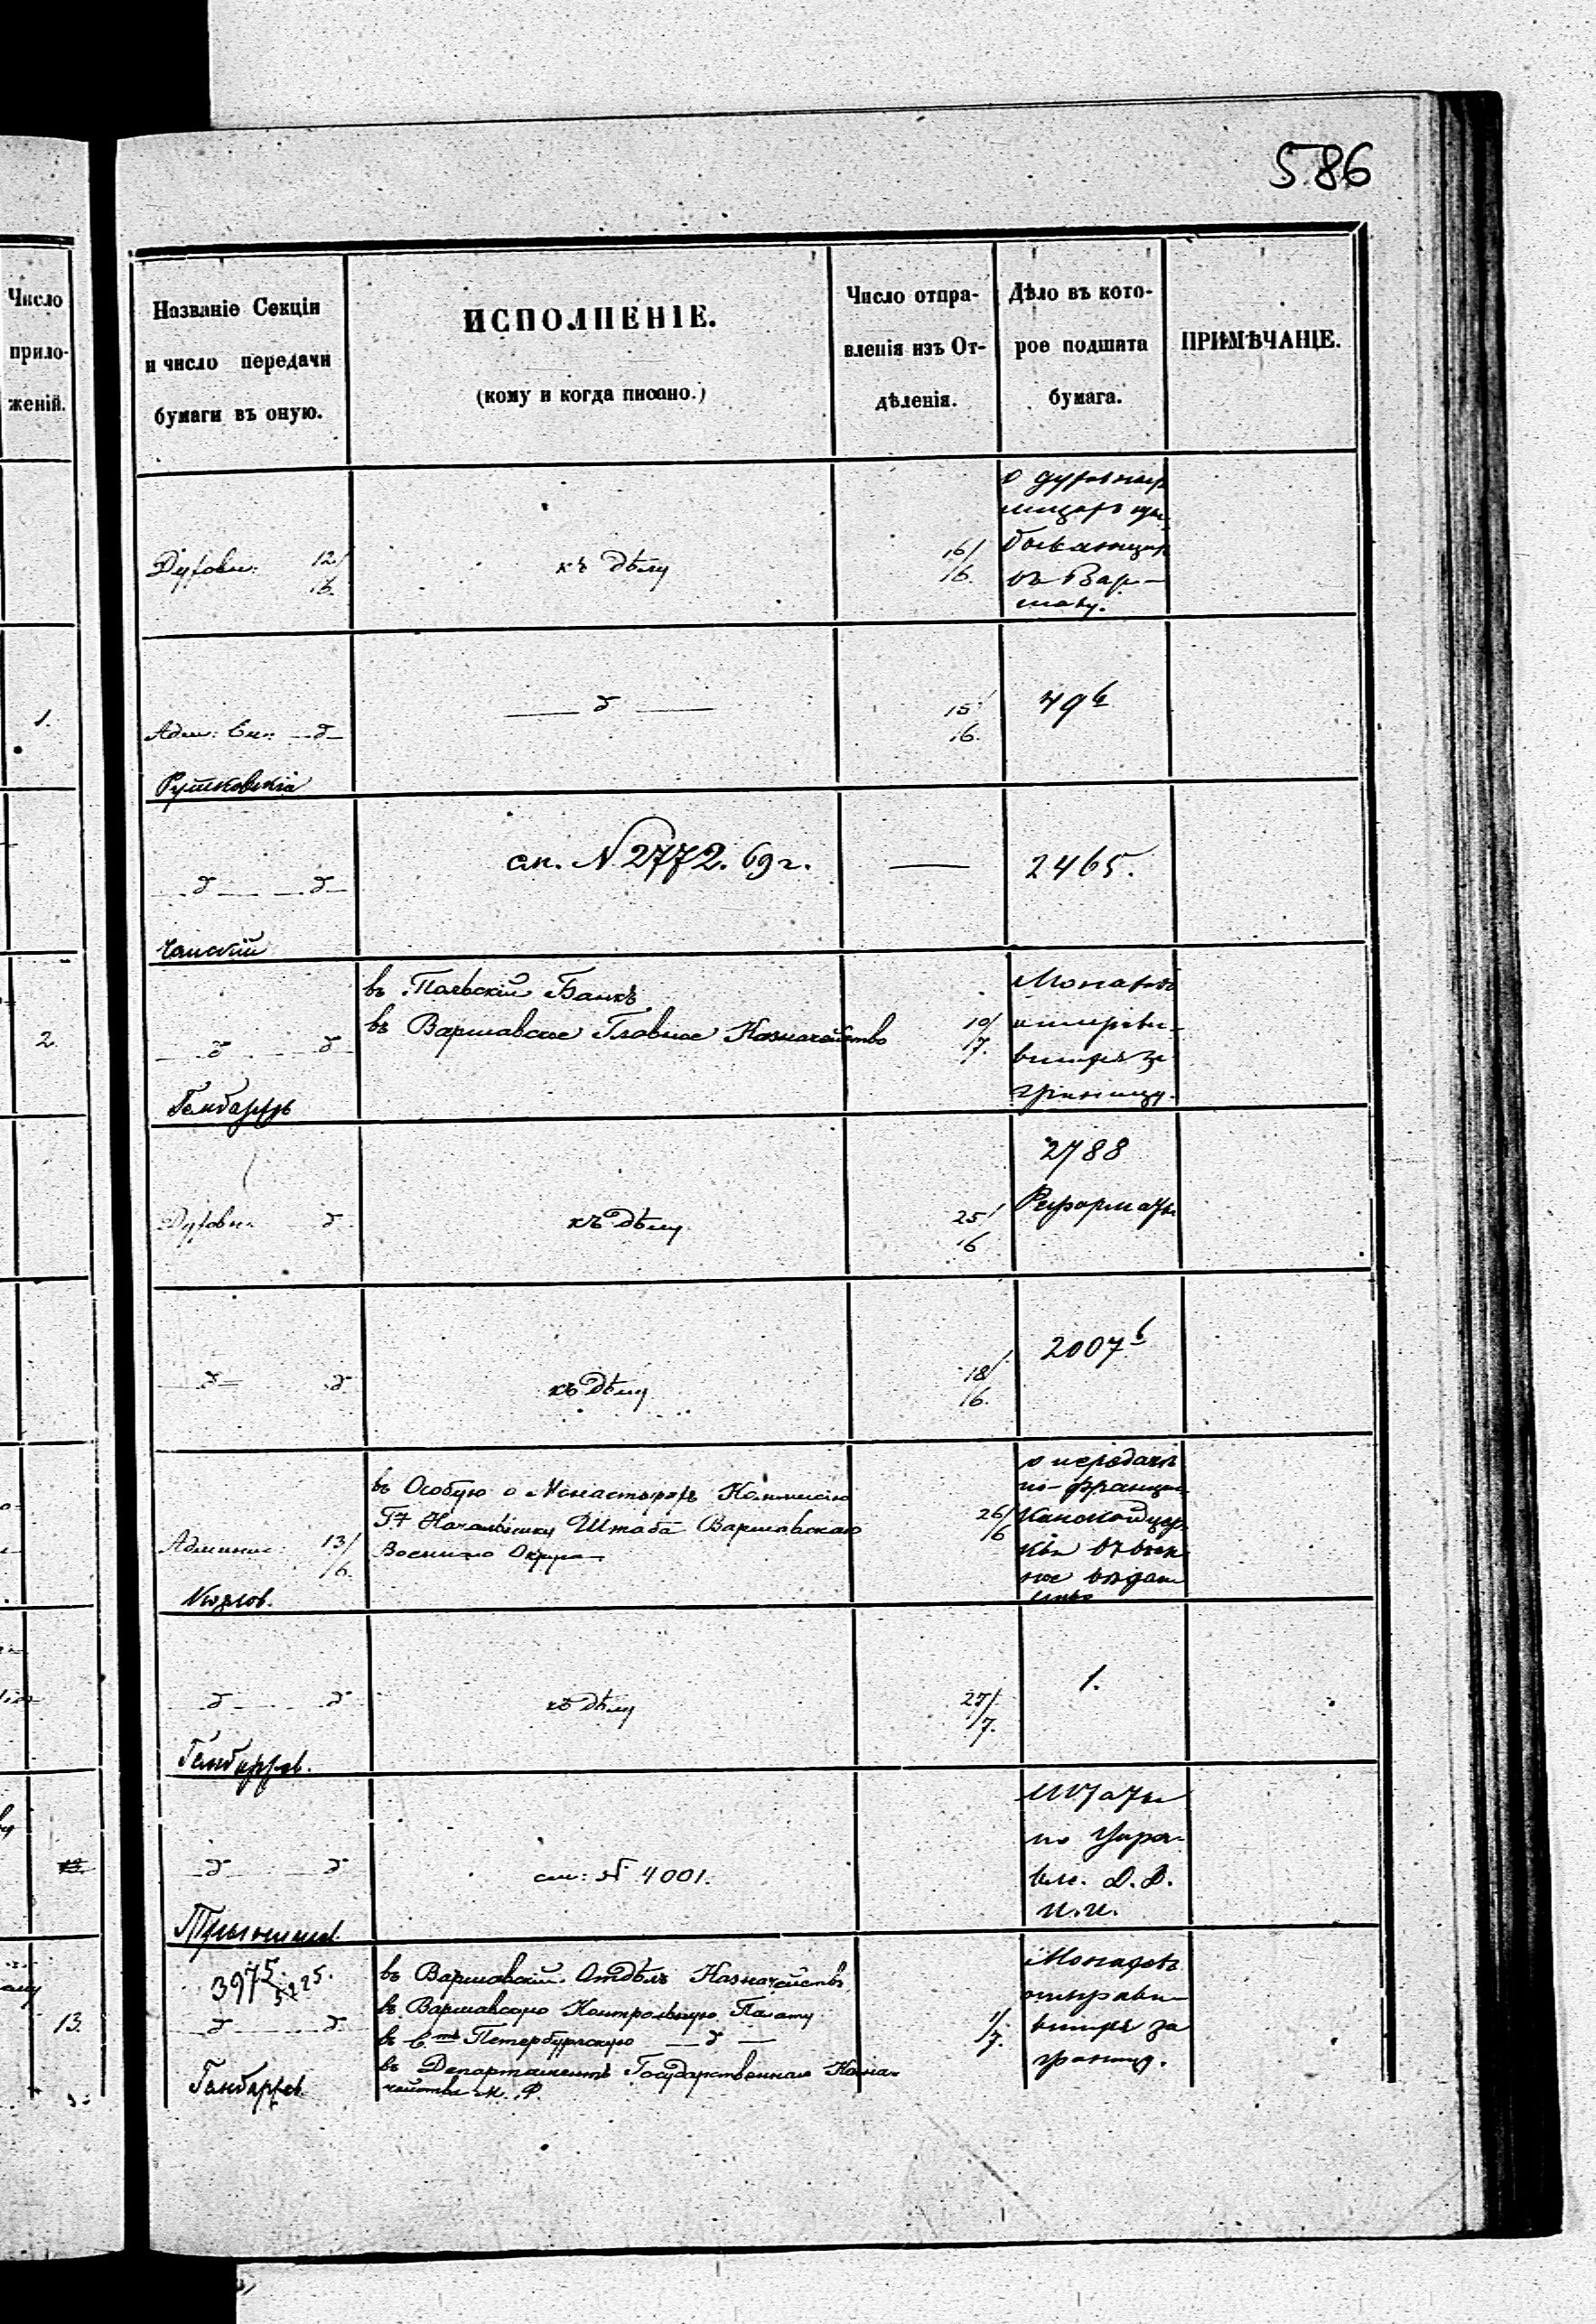 586
Число
прило-
женій.
Названіе Секціи
и число передачи
бумаги въ оную.
ИСПОЛНЕНІЕ.
(кому и когда писано.)
Число отпра-
вленія изъ От-
дѣленія.
Дѣло въ кото-
рое подшита
бумага.
ПРИМѢЧАНІЕ.
Духовн: 12/6.
къ дѣлу
16/6.
о духовныхъ
лицахъ при-
бывающихъ
въ Вар-
шаву.
1.
Адм: д
д
15/6.
49
д д
см. N 2772. 69 г.
2465.
2.
д д
въ Польскій Банкъ
въ Варшавское Главное Казначейство
10/7.
Монаховъ
отправи-
вшихъ за
границу.
Гембаржев
Духовн. д
къ дѣлу
25/6
2788
Реформаты
д д
къ дѣлу
18/6.
2007
Админис: 13/6.
Козлов.
въ Особую о Монастыряхъ Коммисію
Г. Начальнику Штаба Варшавскаго
Военнаго Округа
26/6
о передачѣ
по-францис-
д д
къ дѣлу
27/7.
1.
д д
см: N 4001.
Штаты
по Управ-
лен. Д. Д.
И. И.
3975.
5225.
13.
д д
въ Варшавскій Отдѣлъ Казначействъ
въ Варшавскую Контрольную Палату
въ С. Петербургскую д
въ Департаментъ Государственнаго Казна-
чейства М. Ф.
1/7.
Монаховъ
отправи-
вшихъ за
границу.